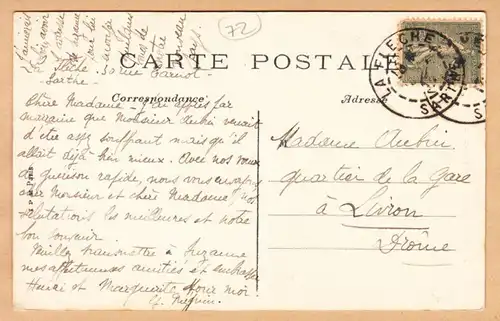 72
CARTE POSTALE
Correspondance
Adresse
LA FLÈCHE
SARTHE
Flèche 30 rue Carnot
Sarthe
Chère Madame - J'ai appris par
marraine que Monsieur Aubin venait
d'être assez souffrant mais qu'il
allait déjà bien mieux. Avec nos vœux
de guérison rapide, nous vous envoyons
cher Monsieur et chère Madame, nos
salutations les meilleures et notre
bon souvenir
Veuillez transmettre à Suzanne
mes affectueuses amitiés et embrasser
Henri et Marguerite pour moi.
Madame Aubin
quartier de la gare
à Livron
Drôme